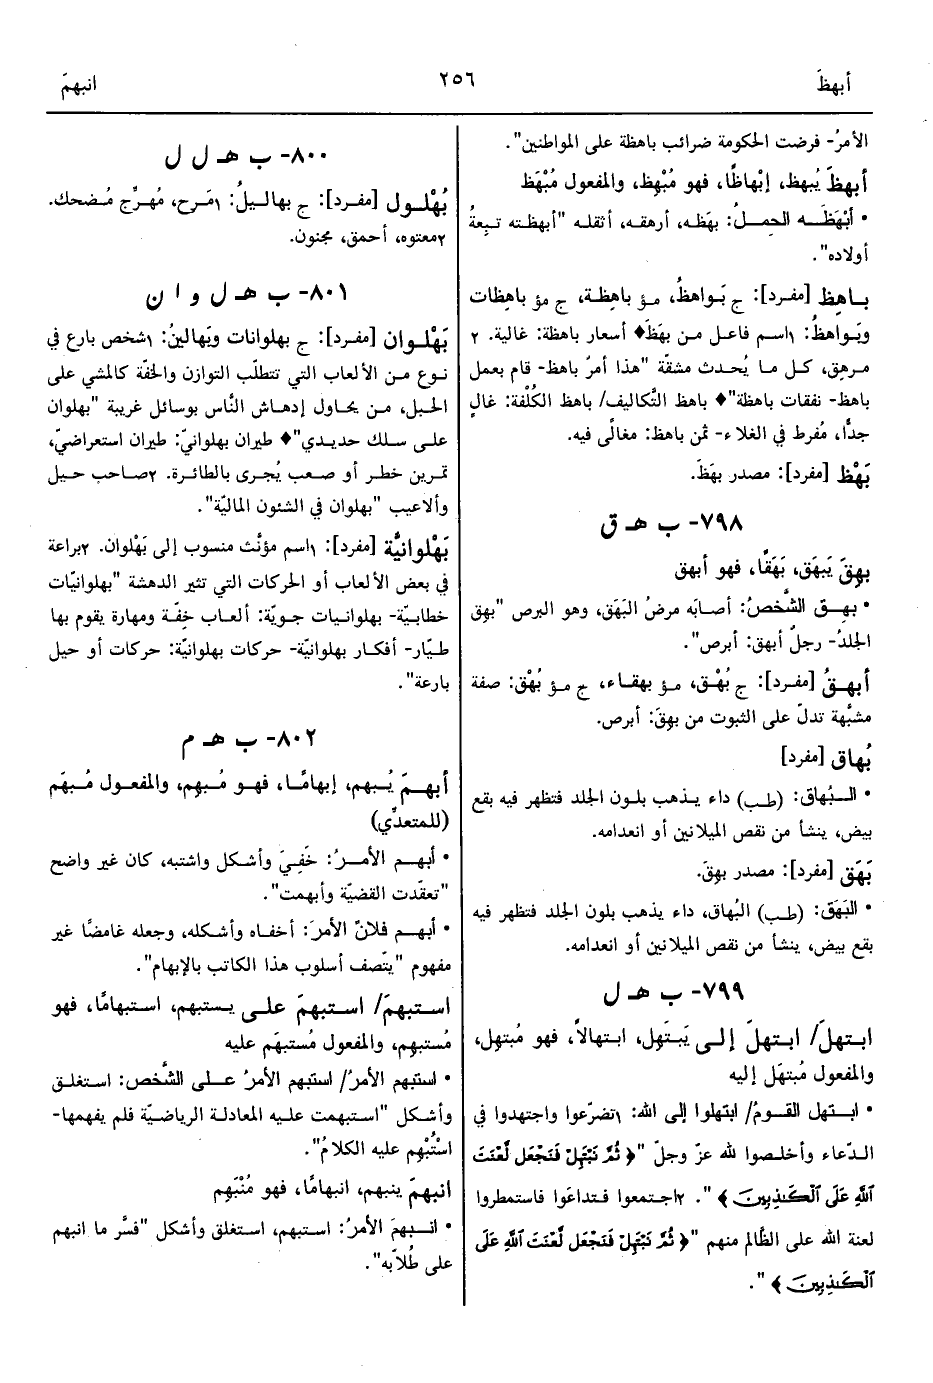 أبهظَ
٢٥٦
انبهمَ
الأمرُ- فرضت الحكومة ضرائب باهظة على المواطنين".
أبهظَ يُبهظ، إبْهاظًا، فهو مُبْهِظ، والمفعول مُبْهَظ
• أبْهَظَـه الحِملُ: بهَظه، أرهقه، أثقله "أبهظته تَبِعةُ
أولاده".
باهِظ [مفرد]: ج بَواهظُ، مؤ باهِظة، ج مؤ باهِظات
وبَواهظُ: ١اسم فاعل من بهَظَ♦ أسعار باهظة: غالية. ٢
مرهِق، كل ما يُحدث مشقّة "هذا أمرٌ باهظ- قام بعمل
باهظ- نفقات باهظة"♦ باهظ التَّكاليف/ باهظ الكُلْفة: غالٍ
جدًّا، مُفرط في الغلاء- ثمن باهظ: مغالًى فيه.
بَهْظ [مفرد]: مصدر بهَظَ.
٧٩٨- ب هـ ق
بهِقَ يَبهَق، بَهَقًا، فهو أبهق
• بهِـق الشَّخصُ: أصابَه مرضُ البَهَق، وهو البرص "بهِق
الجلدُ- رجلٌ أبهق: أبرص".
أبهـقُ [مفرد]: ج بُهْق، مؤ بهقـاء، ج مؤ بُهْق: صفة
مشبَّهة تدلّ على الثبوت من بهِقَ: أبرص.
بُهاق [مفرد]
• الـبُهاق: (طب) داء يذهب بلون الجلد فتظهر فيه بقع
بيض، ينشأ من نقص الميلانين أو انعدامه.
بَهَق [مفرد]: مصدر بهِقَ.
• البَهَق: (طب) البُهاق، داء يذهب بلون الجلد فتظهر فيه
بقع بيض، ينشأ من نقص الميلانين أو انعدامه.
٧٩٩- ب هـ ل
ابتهلَ/ ابتهلَ إلى يَبتَهِل، ابتهالاً، فهو مُبتهِل،
والمفعول مُبتهَل إليه
• ابـتهل القـومُ/ ابتهلوا إلى الله: ١تضرّعوا واجتهدوا في
الـدّعاء وأخلـصوا لله عزّ وجلّ "﴿ ثُمَّ نَبْتَهِلْ فَنَجْعَل لَّعْنَتَ
ٱللَّهِ عَلَى ٱلْكَـٰذِبِينَ ﴾ ". ٢اجتمعوا فـتداعَوا فاستمطروا
لعنة الله على الظَّالم منهم "﴿ ثُمَّ نَبْتَهِلْ فَنَجْعَل لَّعْنَتَ ٱللَّهِ عَلَى
ٱلْكَـٰذِبِينَ ﴾ ".
٨٠٠- ب هـ ل ل
بُهْلـول [مفرد]: ج بهالـيلُ: ١مَرح، مُهرِّج مُضحك.
٢معتوه، أحمق، مجنون.
٨٠١- ب هـ ل و ا ن
بَهْلَوان [مفرد]: ج بهلوانات وبَهالينُ: ١شخص بارع في
نوع من الألعاب التي تتطلّب التوازن والخفّة كالمشي على
الحبل، من يحاول إدهاش النَّاس بوسائل غريبة "بهلوان
على سلك حديدي"♦ طيران بهلوانيّ: طيران استعراضيّ،
تمرين خطر أو صعب يُجرى بالطائرة. ٢صاحب حيل
وألاعيب "بهلوان في الشئون الماليّة".
بَهْلوانيَّة [مفرد]: ١اسم مؤنَّث منسوب إلى بَهْلوان. ٢براعة
في بعض الألعاب أو الحركات التي تثير الدهشة "بهلوانيّات
خطابـيّة- بهلوانـيات جـويّة: ألعاب خِفّة ومهارة يقوم بها
طيّار- أفكار بهلوانيّة- حركات بهلوانيّة: حركات أو حيل
بارعة".
٨٠٢- ب هـ م
أبهـمَ يُبهم، إبهامًا، فهـو مُبهِم، والمفعول مُبهَم
(للمتعدِّي)
• أبهـم الأمـرُ: خَفِيَ وأشكل واشتبه، كان غير واضح
"تعقّدت القضيّة وأبهمت".
• أبهـم فلانٌ الأمرَ: أخفـاه وأشكله، وجعله غامضًا غير
مفهوم "يتّصف أسلوب هذا الكاتب بالإبهام".
استبهمَ/ استبهمَ على يستبهم، استبهامًا، فهو
مُستبهِم، والمفعول مُستبهَم عليه
• استبهم الأمرُ/ استبهم الأمرُ على الشَّخص: استغلق
وأشكل "استبهمت عليه المعادلة الرياضيّة فلم يفهمها-
اسْتُبْهِم عليه الكلامُ".
انبهمَ ينبهم، انبهامًا، فهو مُنْبَهِم
• انـبهمَ الأمرُ: استبهم، استغلق وأشكل "فسَّر ما انبهم
على طُلاّبه".